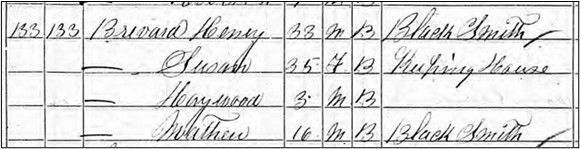 133 133 Brevard Henry 33 M B Black Smith
— Susan 35 F B Keeping House
— Haywood 5 M B
— Mathew 16 M B Black Smith